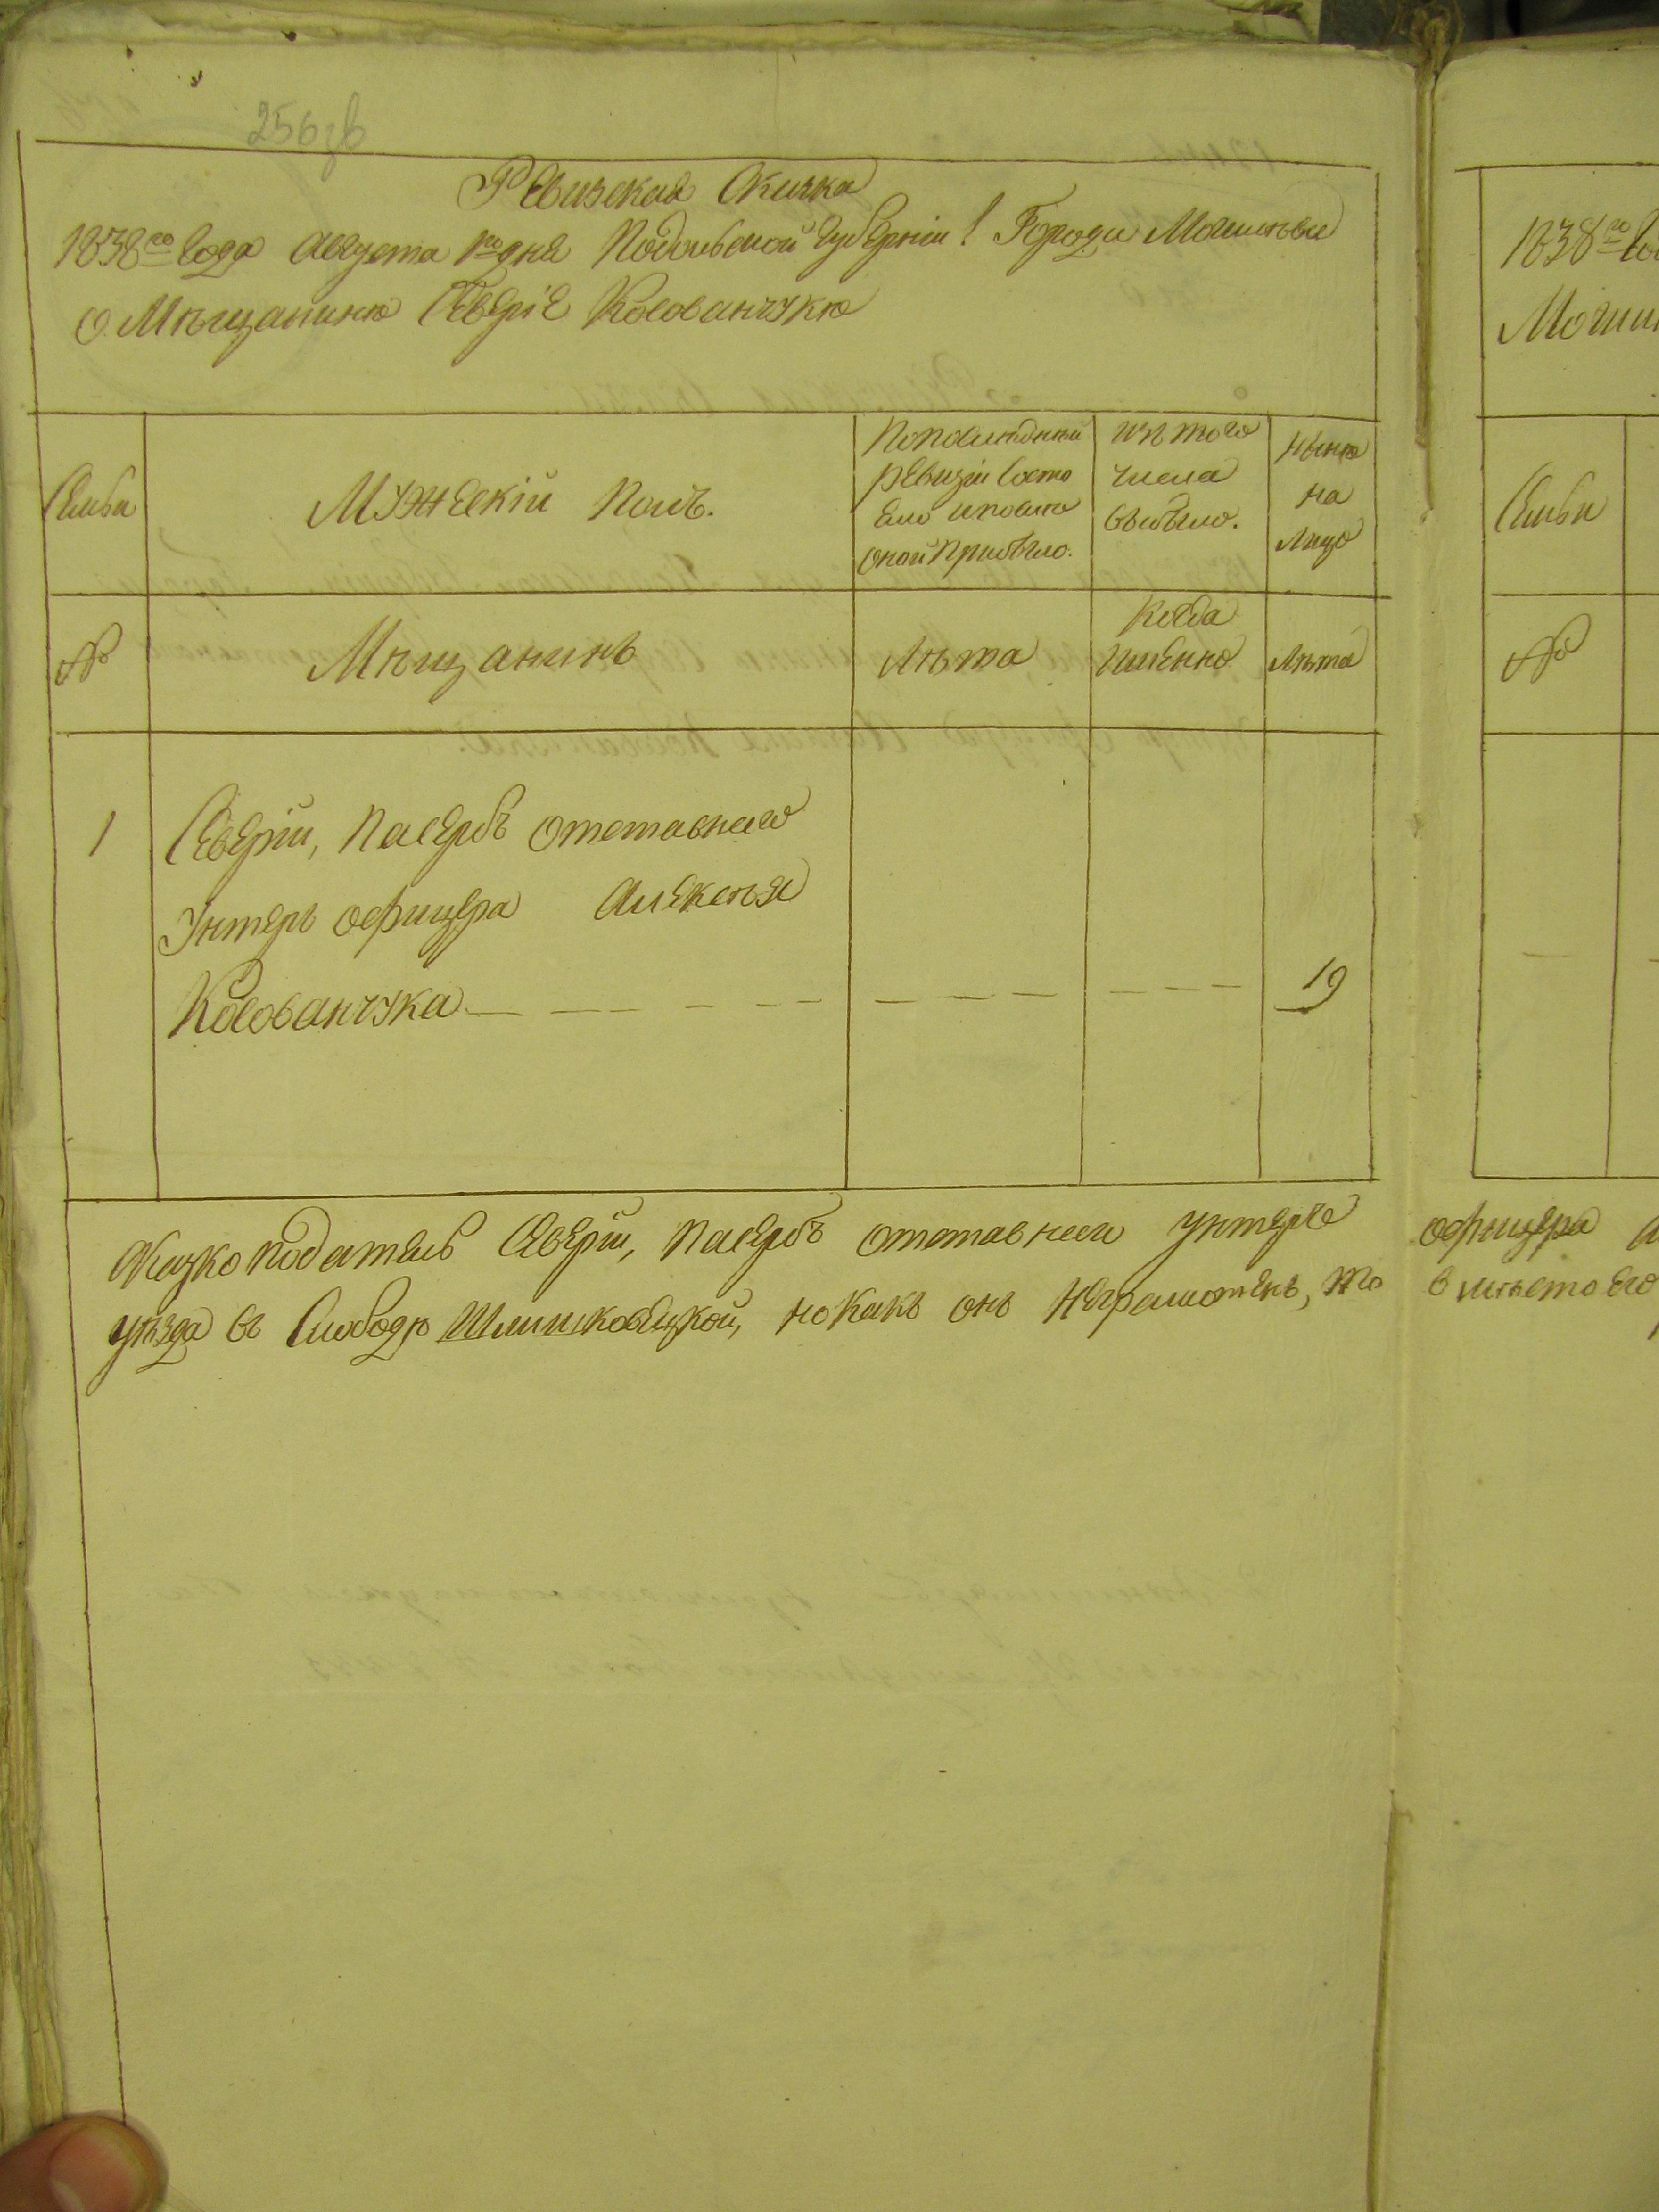 256зв
Ревизская Скизка
1838го Года Августа 1го дня Подольской Губернии! Города Могилева
О Мѣщанинѣ Севѣріе Колованчукѣ
Семьи
Мужескій Полъ.
По последней
ревизіи состо
яло и после
оной прибыло.
изъ того
числа
выбыло.
нынѣ
на
лицо
№
Мѣщанинъ
Лѣта
Когда
именно
Лѣта
1
Северій, Пасербъ отставнаго
Унтеръ офицера Алексѣя
Колованчука
19
Сказкоподатель Северій, Пасербъ отставнаго унтеръ
уѣзда въ Слободѣ Шлишковецкой, но какъ онъ неграмотенъ, то
1838го
Семьи
№
офицера
вместо его